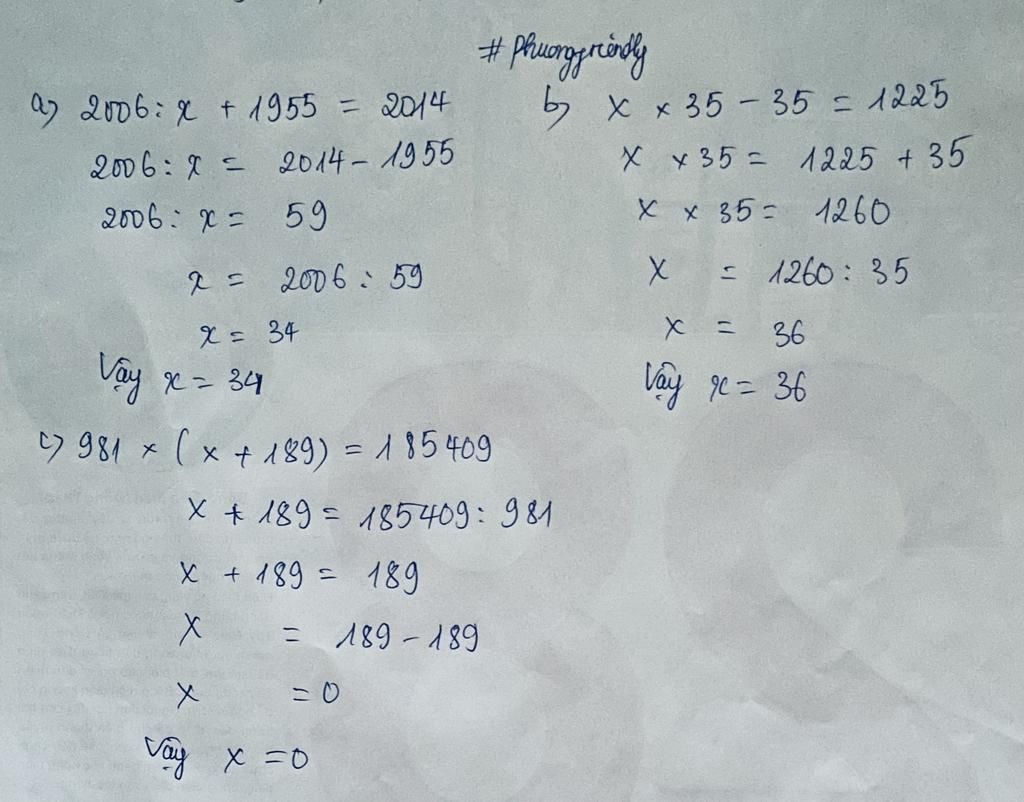 # Phuongfriendly
a) 2006 : x + 1955 = 2014
2006 : x = 2014 - 1955
2006 : x = 59
x = 2006 : 59
x = 34
Vậy x = 34
b) x × 35 - 35 = 1225
x × 35 = 1225 + 35
x × 35 = 1260
x = 1260 : 35
x = 36
Vậy x = 36
c) 981 × ( x + 189) = 185409
x + 189 = 185409 : 981
x + 189 = 189
x = 189 - 189
x = 0
Vậy x = 0